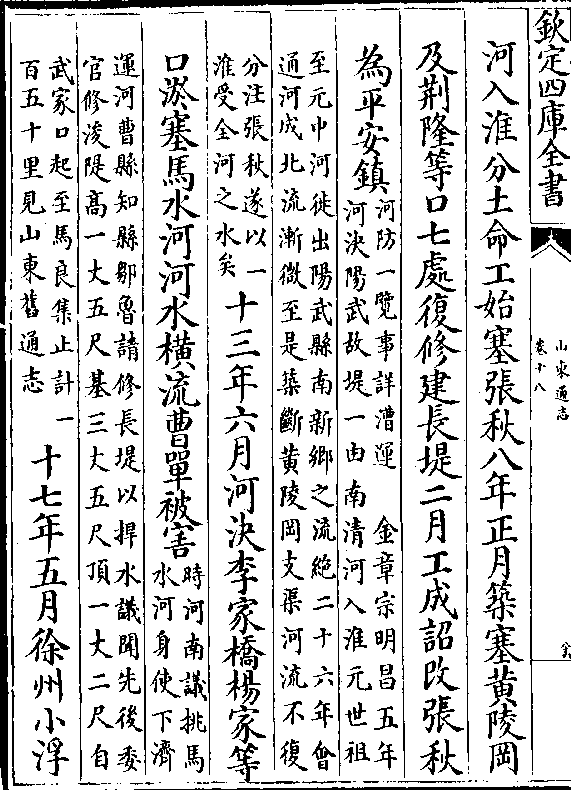 欽定四庫全書
山東通志
卷十八
河入淮分土命工始塞張秋八年正月築塞黄陵岡
及荆隆等口七處復修建長堤二月工成詔改張秋
為平安鎮
河防一覽事詳漕運　金章宗明昌五年
河決陽武故堤一由南清河入淮元世祖
至元中河徙出陽武縣南新鄉之流絶二十六年會
通河成北流漸微至是築斷黄陵岡支渠河流不復
分注張秋遂以一
淮受全河之水矣
十三年六月河決李家橋楊家等
口淤塞馬水河河水横流曹單被害
時河南議挑馬
水河身使下濟
運河曹縣知縣鄒魯請修長堤以捍水議聞先後委
官修浚隄高一丈五尺基三丈五尺頂一丈二尺自
武家口起至馬良集止計一
百五十里見山東舊通志
十七年五月徐州小浮